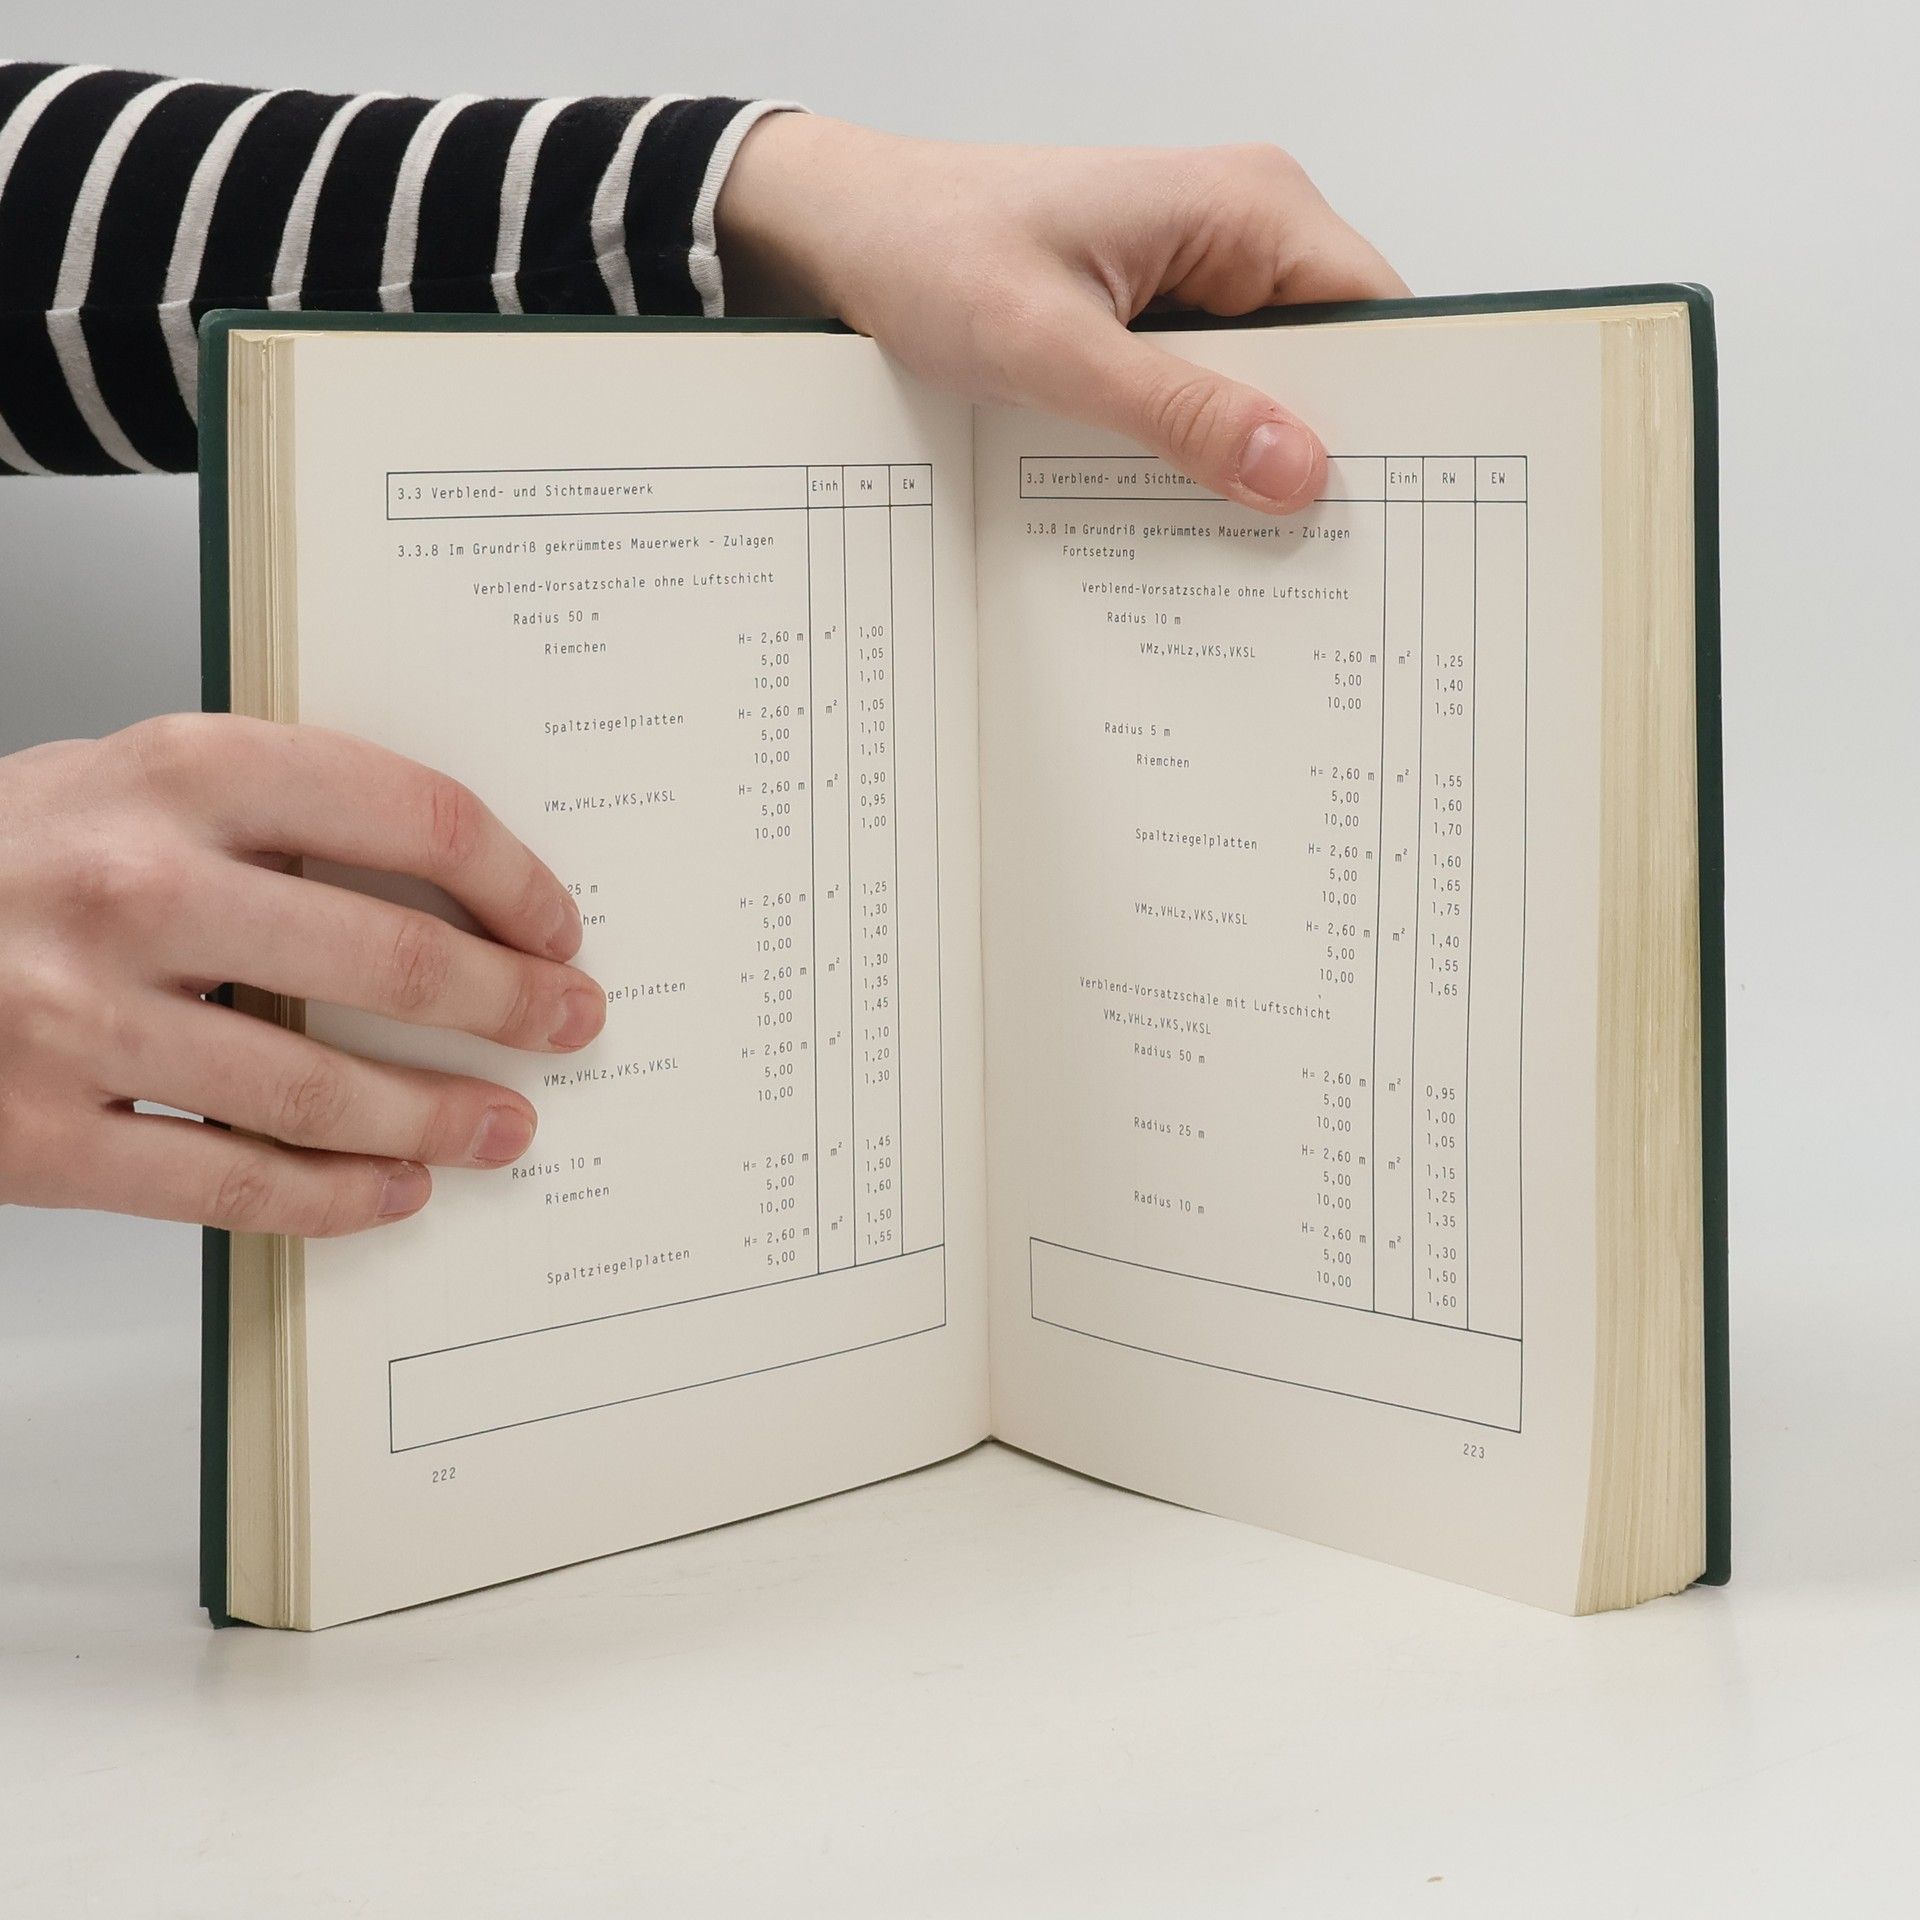 3.3 Verblend- und Sichtmauerwerk Einh RW EW
3.3.8 Im Grundriß gekrümmtes Mauerwerk - Zulagen
Verblend-Vorsatzschale ohne Luftschicht
Radius 50 m
Riemchen H= 2,60 m m² 1,00
5,00 1,05
10,00 1,10
Spaltziegelplatten H= 2,60 m m² 1,05
5,00 1,10
10,00 1,15
VMz,VHLz,VKS,VKSL H= 2,60 m m² 0,90
5,00 0,95
10,00 1,00
25 m
H= 2,60 m m² 1,25
5,00 1,30
10,00 1,40
H= 2,60 m m² 1,30
5,00 1,35
10,00 1,45
VMz,VHLz,VKS,VKSL H= 2,60 m m² 1,10
5,00 1,20
10,00 1,30
Radius 10 m
Riemchen H= 2,60 m m² 1,45
5,00 1,50
10,00 1,60
Spaltziegelplatten H= 2,60 m m² 1,50
5,00 1,55
222
3.3 Verblend- und Einh RW EW
3.3.8 Im Grundriß gekrümmtes Mauerwerk - Zulagen
Fortsetzung
Verblend-Vorsatzschale ohne Luftschicht
Radius 10 m
VMz,VHLz,VKS,VKSL H= 2,60 m m² 1,25
5,00 1,40
10,00 1,50
Radius 5 m
Riemchen H= 2,60 m m² 1,55
5,00 1,60
10,00 1,70
Spaltziegelplatten H= 2,60 m m² 1,60
5,00 1,65
10,00 1,75
VMz,VHLz,VKS,VKSL H= 2,60 m m² 1,40
5,00 1,55
10,00 1,65
Verblend-Vorsatzschale mit Luftschicht
VMz,VHLz,VKS,VKSL
Radius 50 m
H= 2,60 m m² 0,95
5,00 1,00
10,00 1,05
Radius 25 m
H= 2,60 m m² 1,15
5,00 1,25
10,00 1,35
Radius 10 m
H= 2,60 m m² 1,30
5,00 1,50
10,00 1,60
223